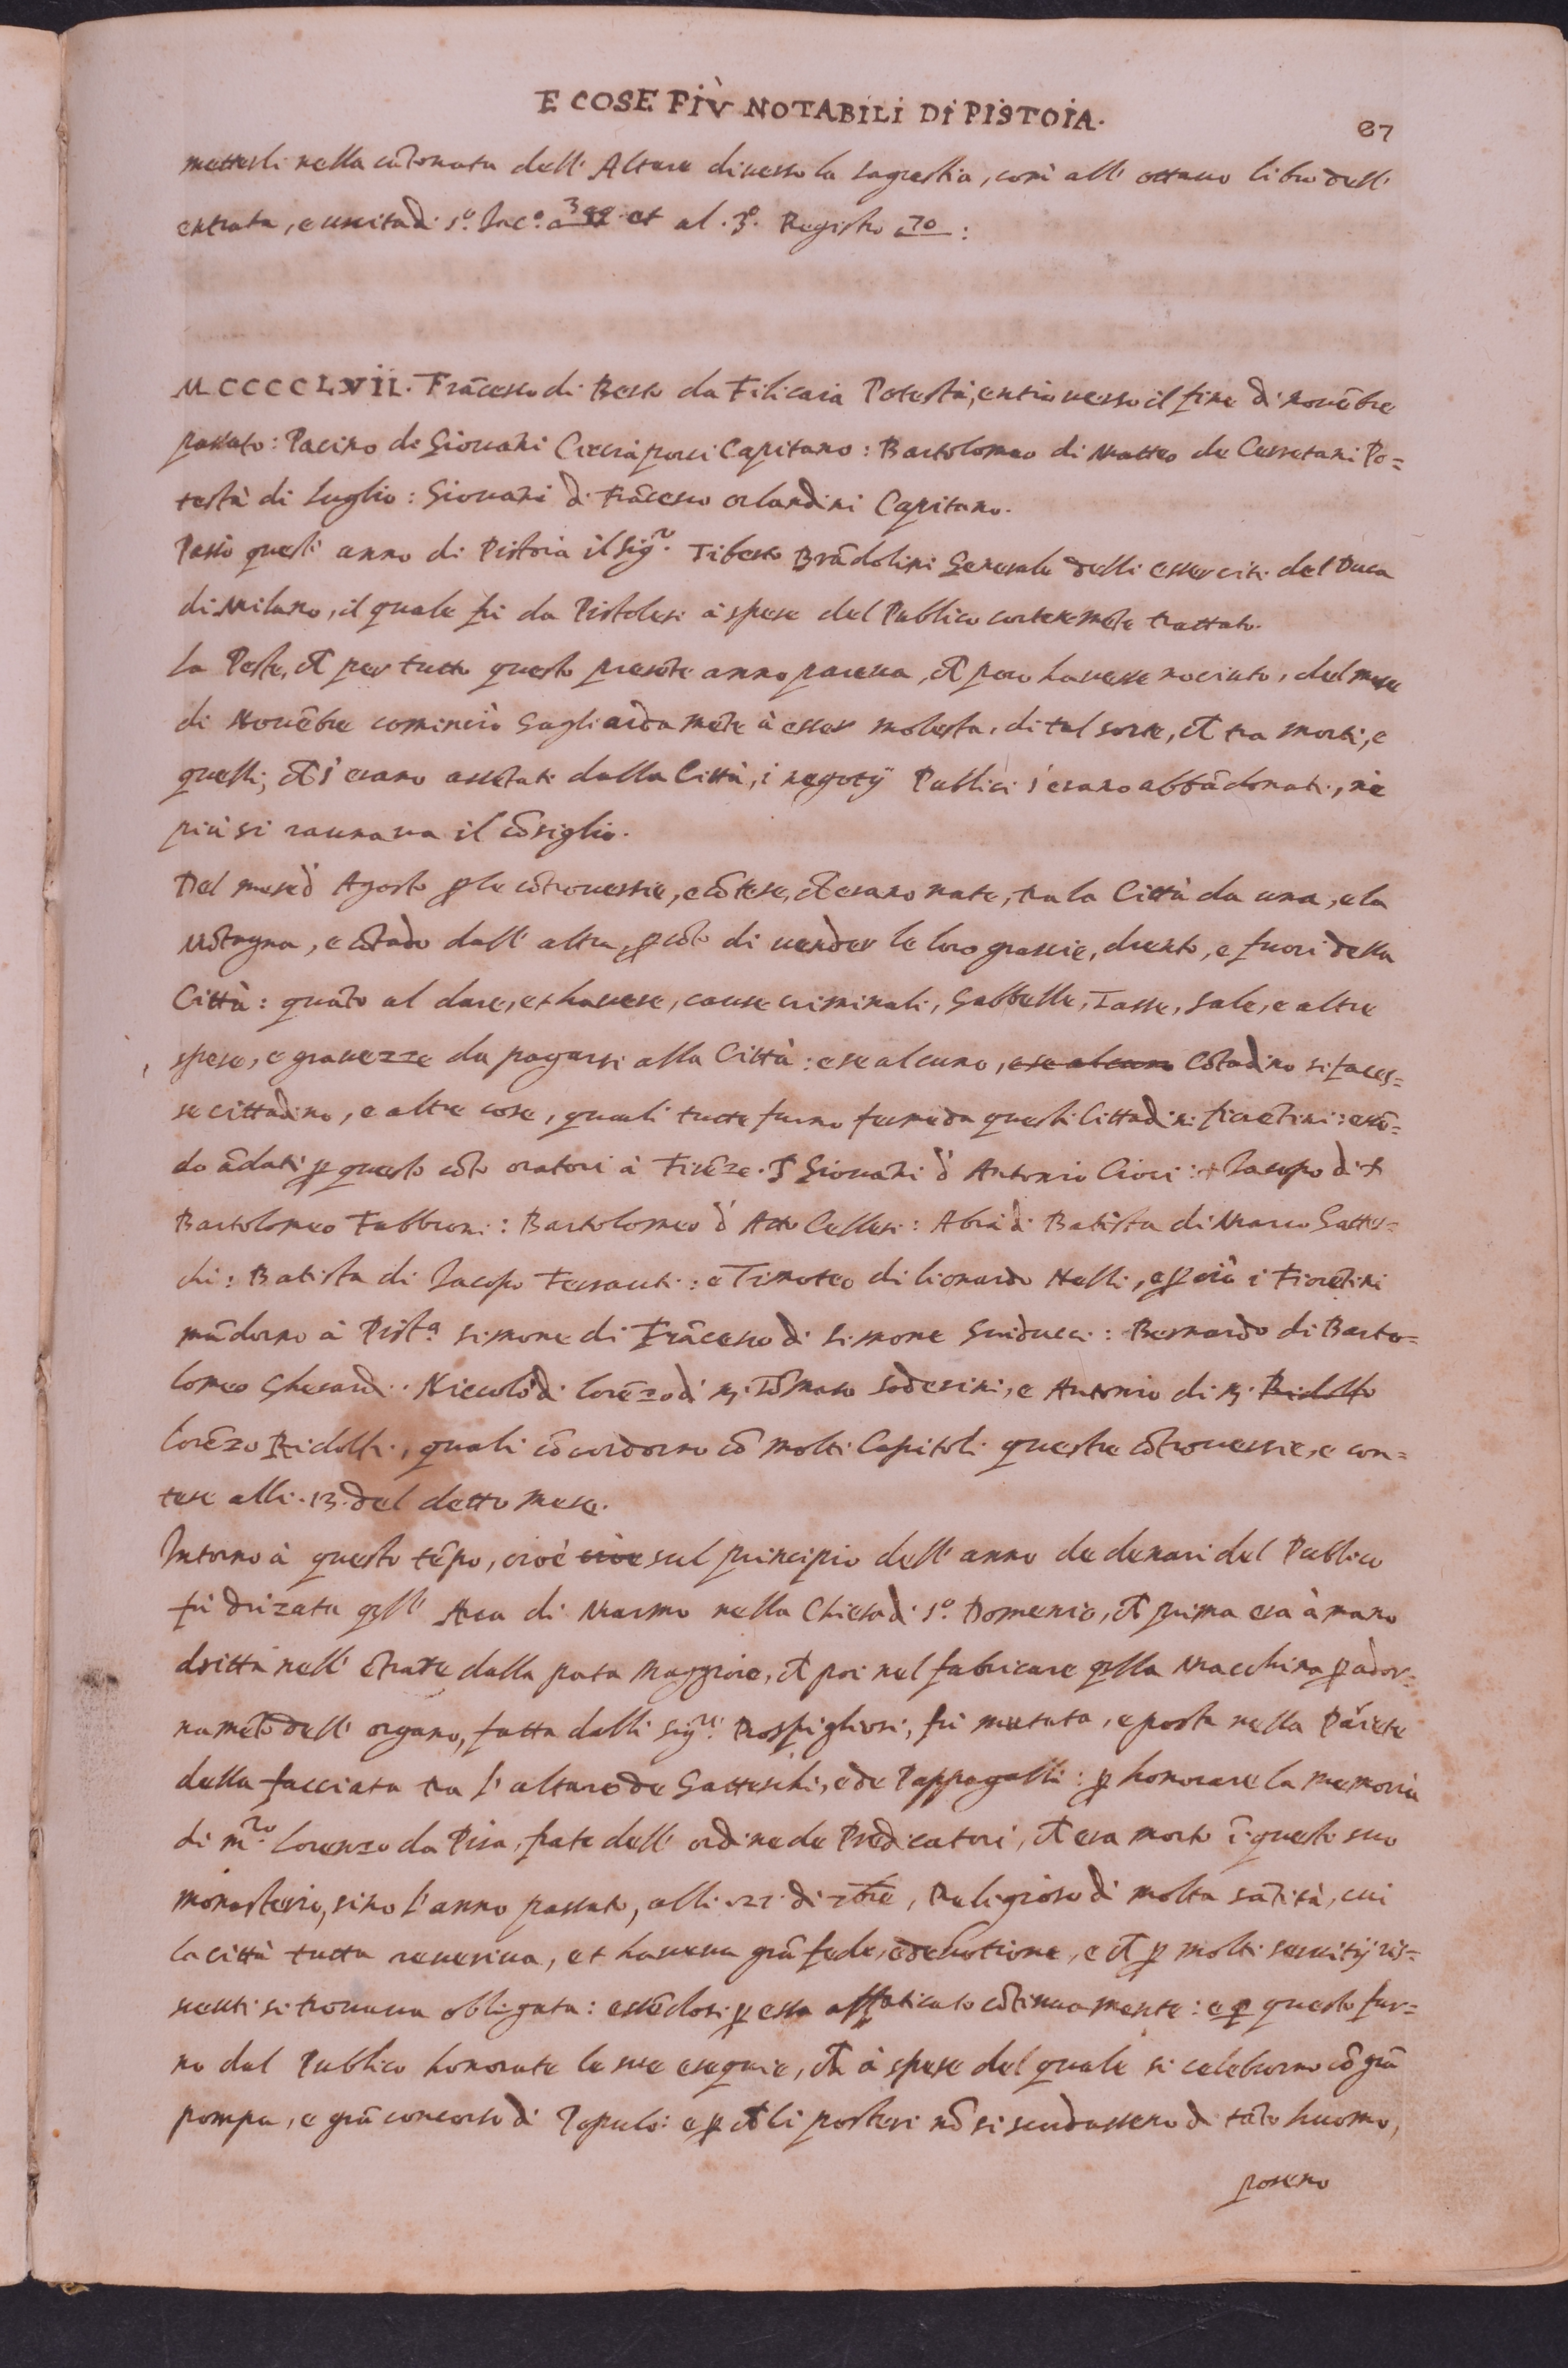 E COSE PIÙ NOTABILI DI PISTOIA.
87
metterli nella cãtonata dell' Altare di verso la sagrestia, così all' ottavo libro dell'
entrata, e uscita di s.º Jac.º a 399 et al .3.º Registro a 70:
MCCCCLVII. Frãcesco di Berto da Filicaia Potestà, entrò verso il fine di novẽbre
passato: Pacino di Giovãni Cicciaporci Capitano: Bartolomeo di Matteo de Cerretani Po=
testà di luglio: Giovãni di Frãcesco Orlandini Capitano.
Passò quest' anno di Pistoia il sig.r Tiberto Brãdolini Generale delli esserciti del Duca
di Milano, il quale fù da Pistolesi à spese del Publico cortesemẽte trattato.
la Peste, ch per tutto questo presẽte anno pareva, ch poco havesse nociuto, del mese
di Novẽbre cominciò gagliardamẽte à esser molesta, di tal sorte, ch tra morti, e
quelli, ch s'erano assẽtati dalla Città, i negotij Publici s'erano abbãdonati, nè
più si raunava il cõsiglio.
Del mese d' Agosto p le cõtroversie, e cõtese, ch erano nate, tra la Città da una, e la
Mõtagna, e cõtado dall' altra, p cõto di vender le loro grascie, drento, e fuori della
Città: quãto al dare, et havere, cause criminali, Gabbelle, Tasse, sale, e altre
spese, e gravezze da pagarsi alla Città: e se alcuno, e se alcuno cõtadino si faces=
se cittadino, e altre cose, quali tutte furno ferme da questi Cittadini fiorẽtini: essẽ=
do ãdati p questo cõto oratori à Firẽze. S Giovãni d' Antonio Cioci: + Jacopo di +
Bartolomeo Fabbroni: Bartolomeo d' Atto Cellesi: Abrã di Batista di Marco Gattes=
chi: Batista di Jacopo Ferranti: e Timoteo di lionardo Nelli, e p ciò i Fiorẽtini
mãdorno à Pist.a Simone di Frãcesco di Simone Guiducci: Bernardo di Barto=
lomeo Gherardi: Niccolò di lorẽzo di M. Tõmaso Soderini, e Antonio di M. Ridolfo
lorẽzo Ridolfi, quali cõcordorno cõ molti Capitoli queste cõtroversie, e con=
tese alli .13. del detto mese.
Intorno à questo tẽpo, cioè cioè sul principio dell' anno de denari del Publico
fù drizata qll' Arca di Marmo nella Chiesa di s.º Domenico, ch prima era à mano
dritta nell' ẽtrate dalla porta Maggiore, ch poi nel fabricare qlla Macchina p ador=
namẽto dell' organo, fatta dalli sig.ri Rospigliosi, fù mutata, e posta nella Pariete
della facciata tra l'altare de Gatteschi, e de Pappagalli: p honorare la memoria
di m.ro lorenzo da Pisa, frate dell' ordine de Predicatori, ch era morto ĩ questo suo
monasterio, sino l'anno passato, alli .21. di 7bre, Religioso di molta sãtità, cui
la città tutta reveriva, et haveva grã fede, e devotione, e ch p molti servitij ris=
ceuti si trovava obligata: essẽdosi p essa affaticato cõtinuamente: e p questo fur=
no dal Publico honorate le sue esequie, ch à spese del quale si celeborno cõ grã
pompa, e grã concorso di Popolo: e p ch li posteri nõ si scordassero di tãto huomo,
posero